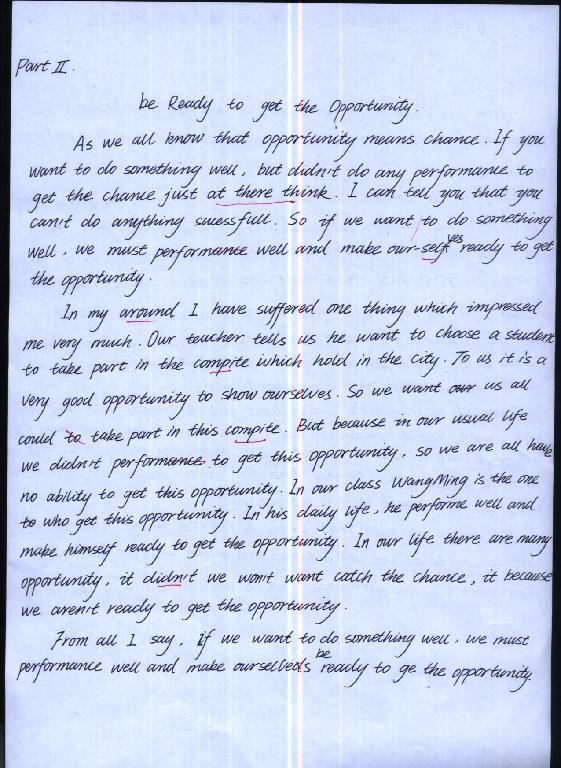 Part II.
be Ready to get the Opportunity.
As we all know that opportunity means chance. If you
want to do something well, but didn't do any performance to
get the chance just at there think. I can tell you that you
can't do anything sucessfull. So if we want to do something
well, we must performance well and make our-self yes ready to get
the opportunity.
In my around I have suffered one thing which impressed
me very much. Our teacher tells us he want to choose a student
to take part in the compite which hold in the city. To us it is a
very good opportunity to show ourselves. So we want our us all
could to take part in this compite. But because in our usual life
we didn't performance to get this opportunity, so we are all have
no ability to get this opportunity. In our class WangMing is the one
to who get this opportunity. In his daily life, he performe well and
make himself ready to get the opportunity. In our life there are many
opportunity, it didn't we won't want catch the chance, it because
we aren't ready to get the opportunity.
From all I say, if we want to do something well, we must
performance well and make ourselved's be ready to ge the opportunity.